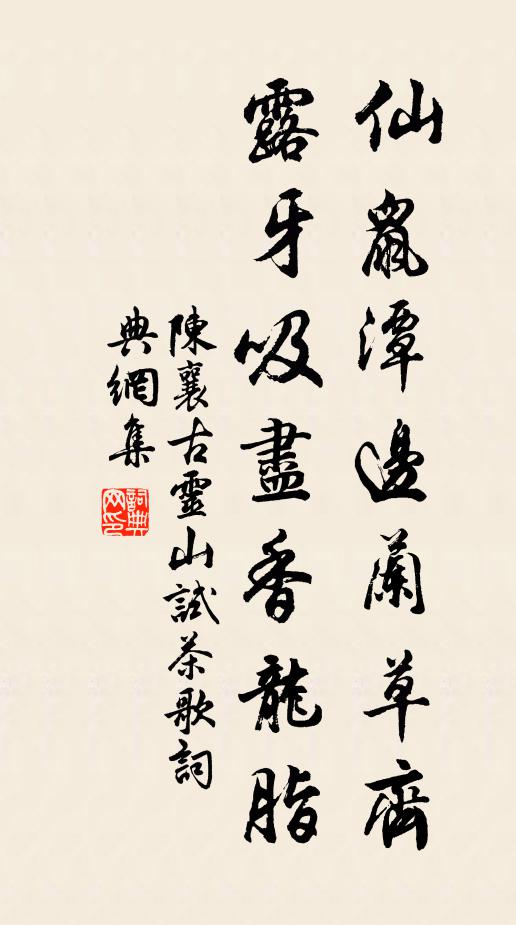 仙鼠潭邊蘭草齊
露牙吸盡香龍脂
陳襄古靈山試茶歌詞
典網集
詞典網印